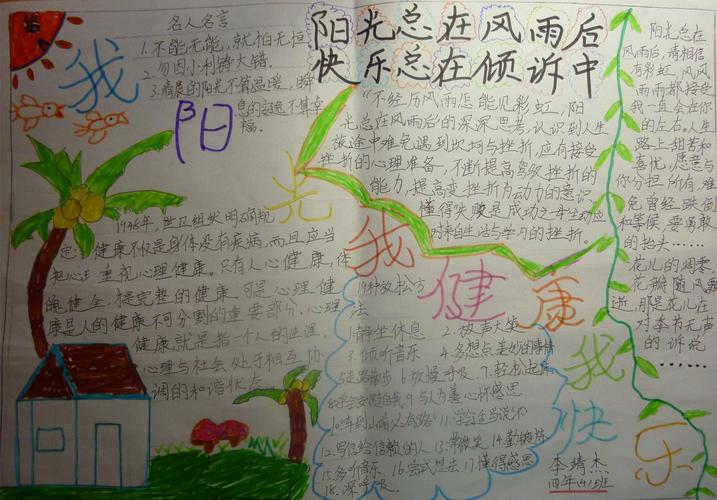 名人名言
1.不能无能,就怕无恒
2.勿因小利铸大错.
3.清晨的阳光不算温暖,瞬
福。
阳光总在风雨后
快乐总在倾诉中
"不经历风雨怎能见彩虹,阳
光总在风雨后"的深深思考,认识到人生
旅途中难免遇到坎坷与挫折,应有接受
挫折的心理准备,不断提高驾驭挫折的
能力,提高变挫折为动力的意识
懂得失败是成功之母主动应
对来自生活与学习的挫折。
阳光总在
风雨后,请相信
有彩虹,风风
雨雨都接受
我一直会在你
的左右。人生
路上甜苦和
喜忧,愿意与
你分担所有,难
免曾经跌倒
和等候,要勇敢
的抬头……
花儿的凋零,
花瓣随风飘
逝,那是花儿在
对季书无声
的诉说
……
1948年,世卫组织明确规
定:健康不仅是身体没有疾病,而且应当
重视心理健康。只有人心健康,体
魄健全,才是完整的健康。可是心理健
康是人的健康不可分割的重要部分,心理
健康就是指一个人的生涯,
心理与社会处于相互协
调的和谐状态
我
阳
光
我
健
康
我
快
乐
19种放松方
法
1.静坐休息
2.放声大笑
3.倾听音乐
4.多想点美妙的事情
5.走路散步 6.放慢呼吸. 7.轻松起床
9.与人为善心怀感恩
10.车到山前必有路 11.学会适当说"不"
12.写信给信赖的人 13.常微笑 14.勤锻炼
15.多听音乐. 16.尝试想法 17.懂得感恩
18.深呼吸.
李靖杰
四年(4)班